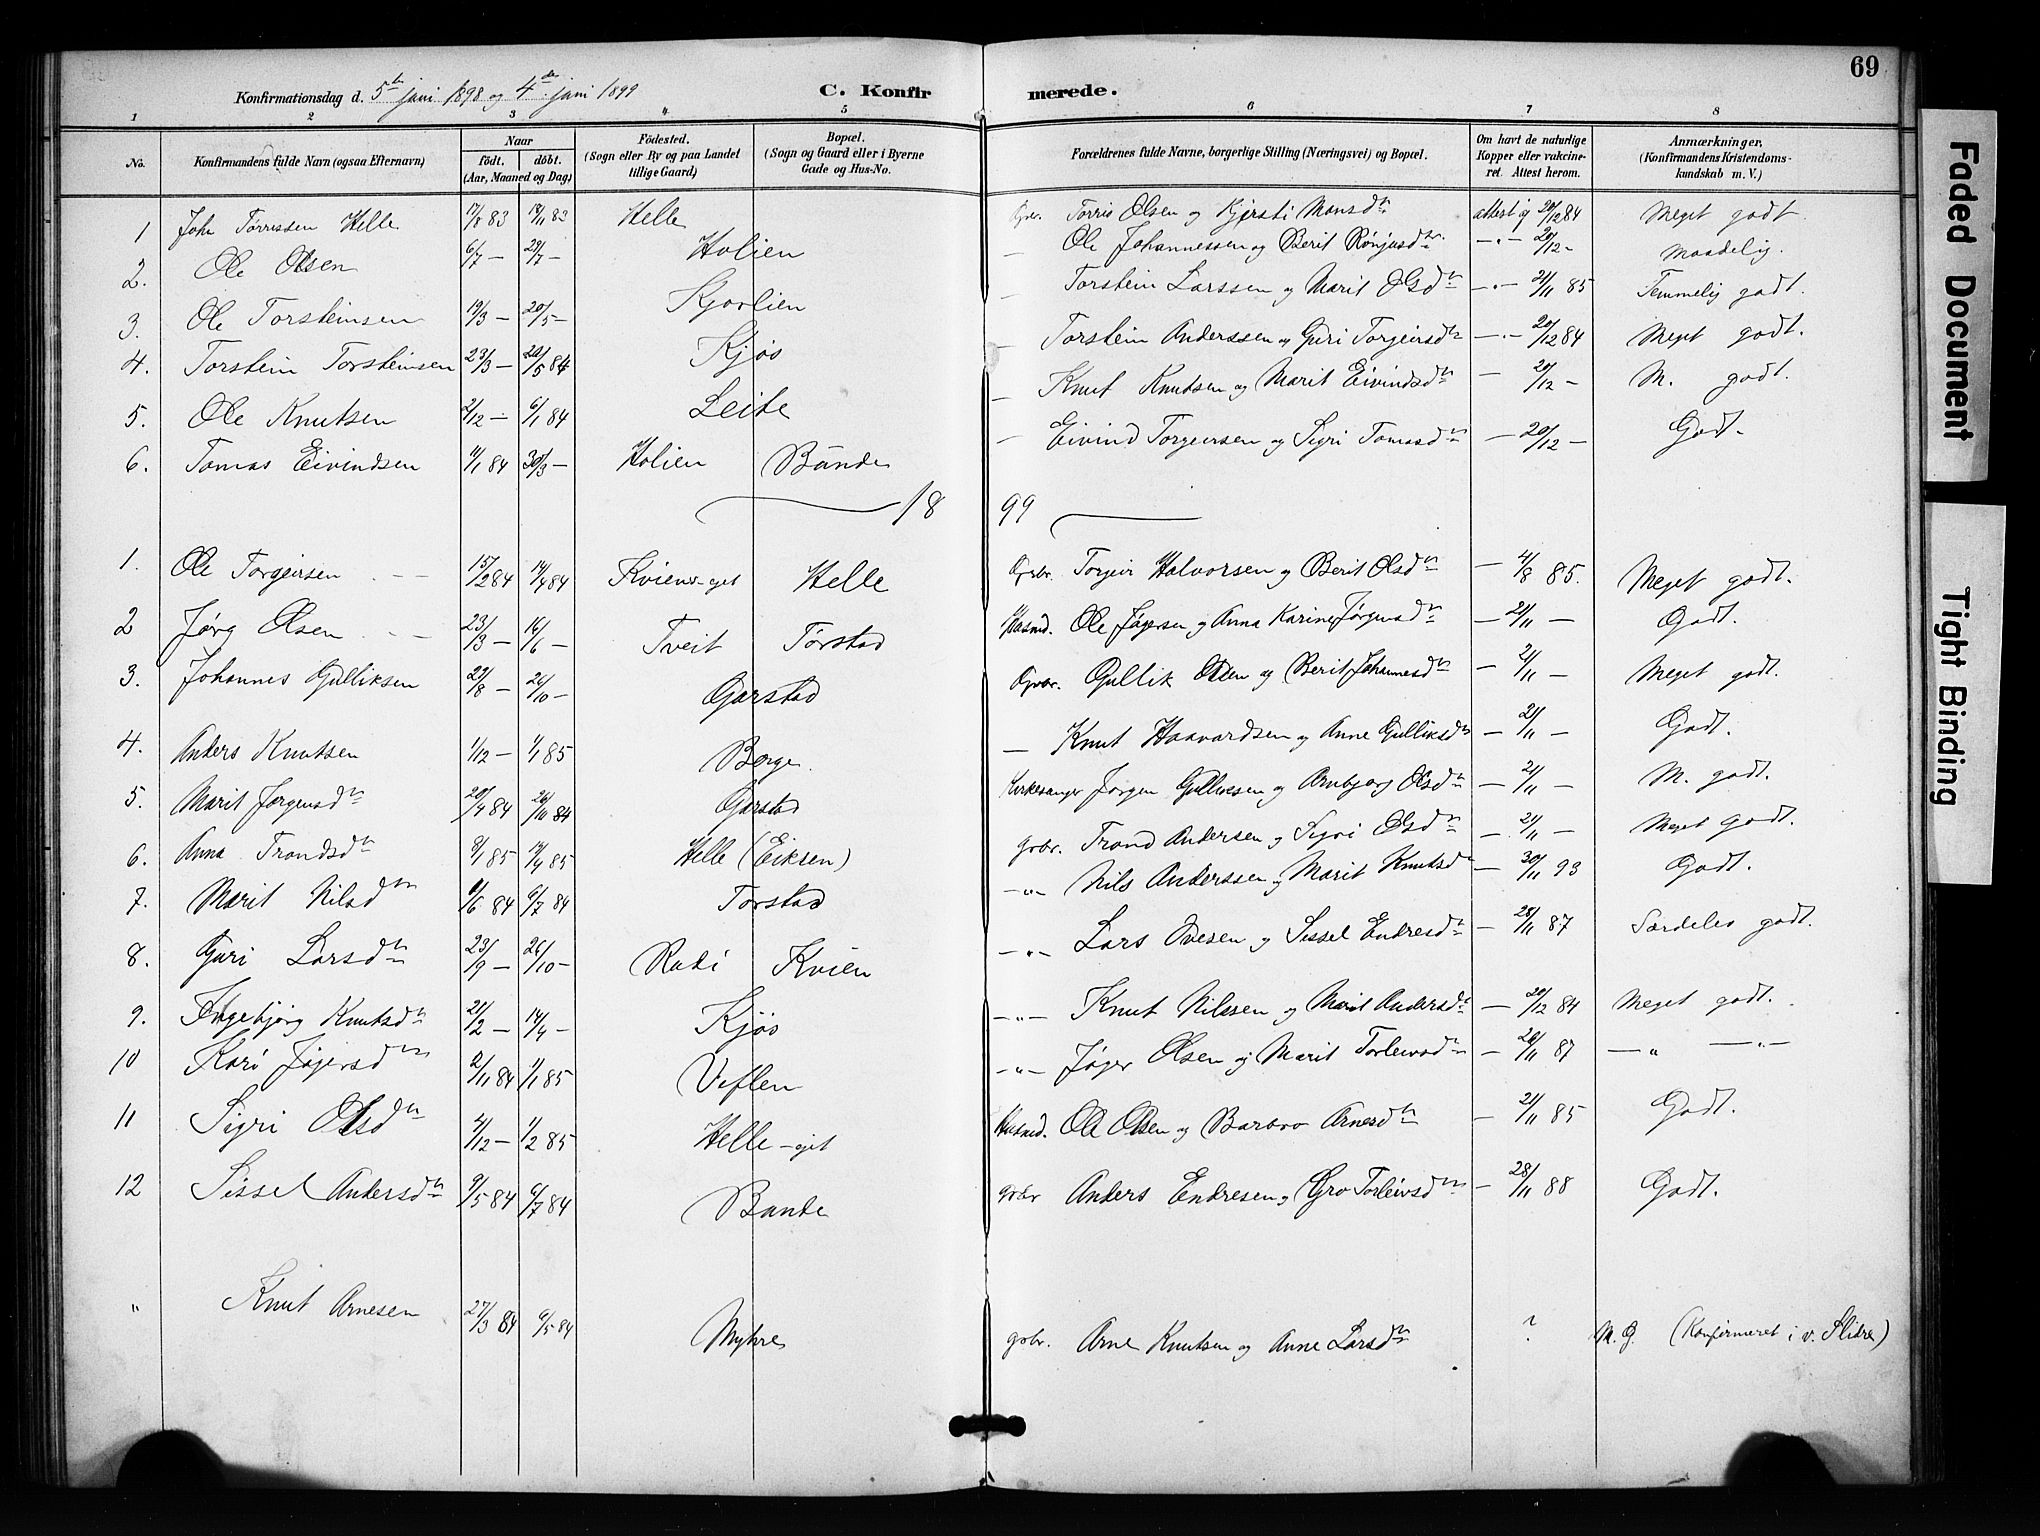 69
Konfirmationsdag d. 5te juni 1898 og 4de juni 1899 C. Konfirmerede.
1 2 3 4 5 6 7 8
No. Konfirmandens fulde Navn (ogsaa Efternavn) Naar födt. döbt. (Aar, Maaned og Dag) Födested. (Sogn eller By og paa Landet tillige Gaard) Bopæl. (Sogn og Gaard eller i Byerne Gade og Hus-No. Forældrenes fulde Navne, borgerlige Stilling (Næringsvei) og Bopæl. Om havt de naturlige Kopper eller vakcineret. Attest herom. Anmærkninger, (Konfirmandens Kristendomskundskab m. V.)
1 Joh. Torrissen Helle 17/8 83 18/11 83 Helle Gbr. Torris Olsen og Kjersti Monsdtr attest ig 20/12 84 Meget godt
2. Ole Olsen 6/7 — 29/7 — Holien — Ole Johannessen og Berit Rönjusdtr. —"— 20/12 — Maadelig.
3. Ole Torsteinsen 19/3 — 20/5 — Kjorlien — Torstein Larssen og Marit Olsdtr —"— 21/11 85 Temmelig godt.
4. Torstein Torsteinsen 23/3 — 22/5 84 Kjøs — Torstein Anderssen og Guri Torgeirsdtr —"— 20/12 84 Meget godt.
5. Ole Knutsen 2/12 — 6/1 84 Leite — Knut Knutsen og Marit Eivindsdtr — 20/12 — M. godt.
6. Tomas Eivindsen 11/1 84 30/3 — Holien Bunde — Eivind Torgeirsen og Sigri Tomasdtr — 20/12 — Godt.
1899
1. Ole Torgeirsen 15/2 84 14/4 84 Kviens-eget Helle Grbr. Torgeir Halvorsen og Berit Olsdtr — 4/8 85. Meget godt.
2 Jørg Olsen 23/3 — 16/6 — Tveit Torstad Husmd. Ole Jøgersen og Anna Karine Jørgensdtr — 21/11 — Godt.
3. Johannes Gulliksen 22/8 — 26/10 — Garstad Grbr. Gullik Olsen og Berit Johannesdtr — 21/11 — Meget godt.
4. Anders Knutsen 1/12 — 1/1 85 Borge. — Knut Haavardsen og Anne Gulliksdtr — 21/11 — Godt.
5. Marit Jørgensdtr 20/4 84 26/10 84 Garstad Kirkesanger Jørgen Gulliksen og Arnbjørg Olsdtr — 21/11 — M. godt.
6. Anna Trondsdtr 9/1 85 14/4 85 Helle (Eiksen) grbr. Trond Andersen og Sigri Olsdtr — 21/11 — Meget godt.
7. Marit Nilsdtr 9/6 84 6/7 84 Torstad —"— Nils Anderssen og Marit Knutsdtr — 30/11 93 Godt.
8. Guri Larsdtr 23/9 — 26/10 — Rudi Kvien —"— Lars Ovesen og Sissel Endresdtr — 28/11 87 Særdeles godt.
9. Ingebjörg Knutsdtr 21/2 — 14/4 — Kjøs —"— Knut Nilssen og Marit Andersdtr — 20/12 84 Meget godt.
10 Kari Jøgersdtr 2/11 84 1/1 85 Veflen —"— Jøger Olsen og Marit Torleivsdtr — 26/11 87 —"— —"—
11 Sigri Olsdtr 4/12 — 1/2 85 Helle-eget Husmd. Ole Olsen og Barbro Arnesdtr — 21/11 85 Godt.
12 Sissel Andersdtr 9/5 84 6/7 84 Bunde grbr Anders Endresen og Gro Torleivsdtr — 28/11 88 Godt.
" Knut Arnesen 27/3 84 6/5 84 Myhre grbr. Arne Knutsen og Anne Larsdtr ? M. G. (Konfirmeret i v. Slidre)
Faded Document
Tight Binding